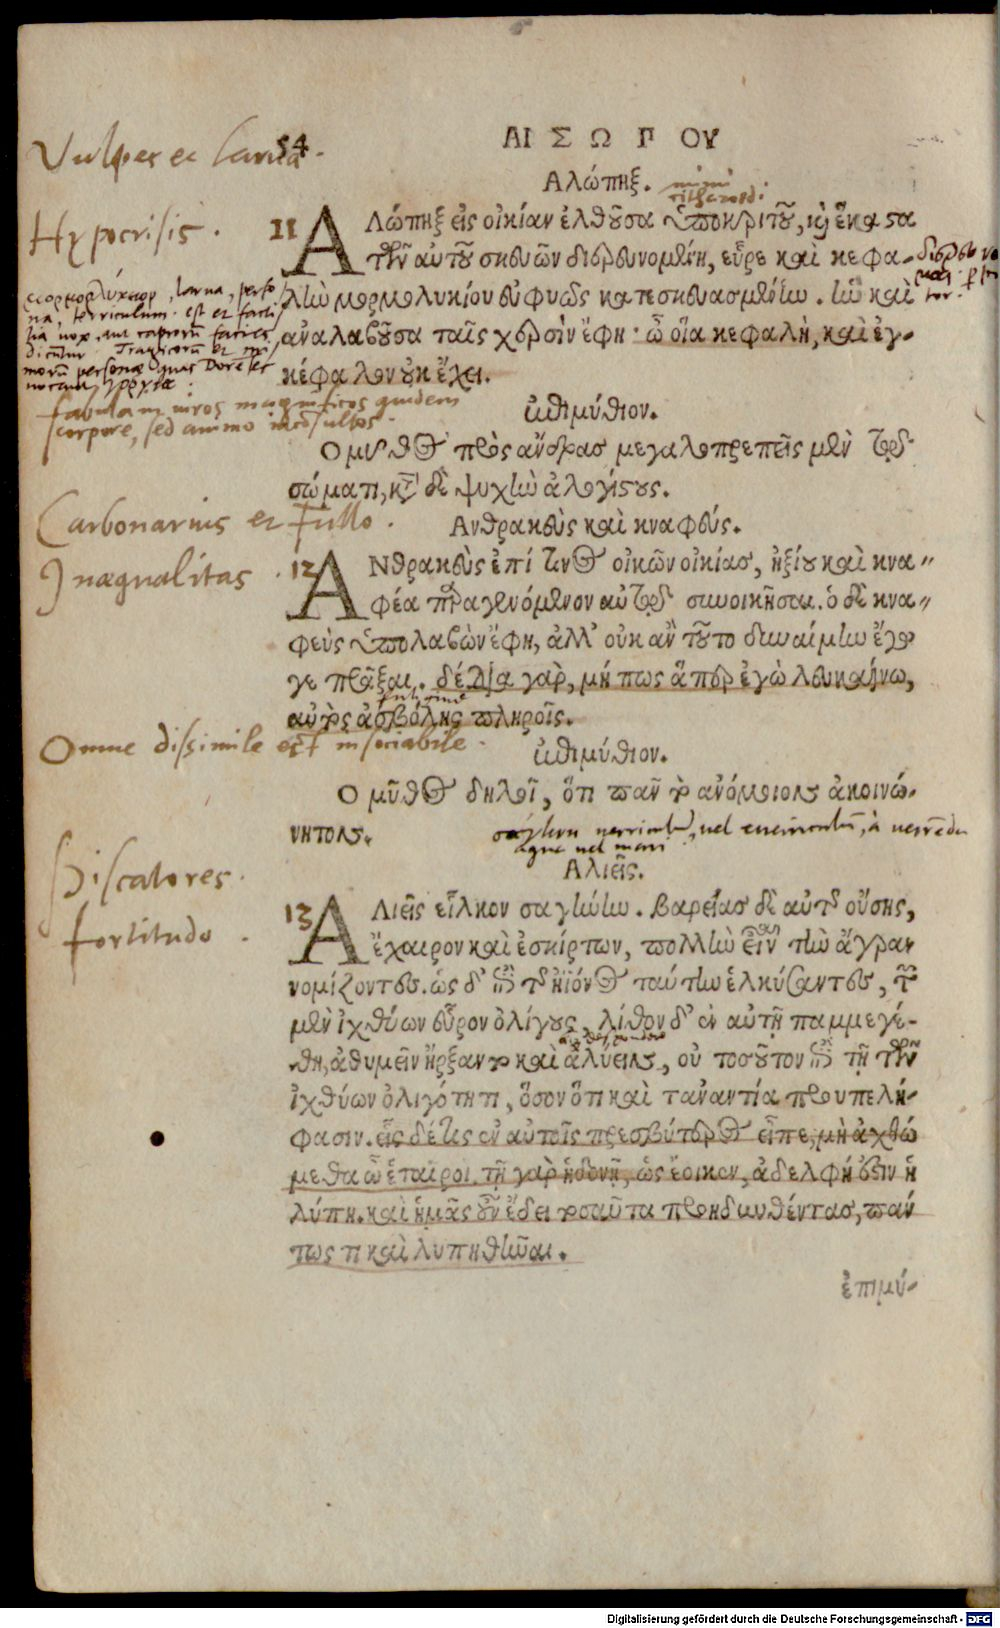 Vulpes et larua. 54
ΑΙΣΩΠΟΥ
Αλώπηξ.
mimi
Hypocrisis.
11 ΑΛώπηξ εἰς οἰκίαν ἐλθοῦσα ὑποκριτοῦ, καὶ ἕκαστα
τῶν αὐτοῦ σκευῶν διερευνομένη, εὗρε καὶ κεφα-
λὴν μορμολυκίου εὐφυῶς κατεσκευασμένην. ἣν καὶ
ἀναλαβοῦσα ταῖς χερσὶν ἔφη· ὦ οἵα κεφαλὴ, καὶ ἐγ-
κέφαλον οὐκ ἔχει.
larua, perso
na, terriculum. est et facti
tia uox, aut caprorũ facies
dicuntur. Tragicorũ et mi
morũ personae quas Dorieses
uocant γοργια
fabulam uiros magnificos quidem
corpore, sed animo incõsultos.
ἐπιμύθιον.
Ο μῦθος πρὸς ἄνδρας μεγαλοπρεπεῖς μὲν τῷ
σώματι, κατὰ δὲ ψυχὴν ἀλογίστους.
Carbonarius et Fullo.
Ανθρακεὺς καὶ κναφεύς.
Inaequalitas.
12 ΑΝθρακεὺς ἐπί τινος οἰκῶν οἰκίας, ἠξίου καὶ κνα-
φέα παραγενόμενον αὐτῷ συνοικῆσαι. ὁ δὲ κνα-
φεὺς ὑπολαβὼν ἔφη, ἀλλ' οὐκ ἂν τοῦτο δυναίμην ἔγω
γε πρᾶξαι. δέδια γὰρ, μή πως ἅπερ ἐγὼ λευκαίνω,
αὐτὸς ἀσβόλης πληροῖς.
Omne dissimile est insociabile.
ἐπιμύθιον.
Ο μῦθος δηλοῖ, ὅτι πᾶν τὸ ἀνόμοιον ἀκοινώ-
νητον.
uerriculũ, uel euerriculũ, à uerrẽdo
aquã uel mari
Piscatores.
Αλιεῖς.
fortitudo.
13 ΑΛιεῖς εἷλκον σαγήνην. βαρείας δὲ αὐτῆς οὔσης,
ἔχαιρον καὶ ἐσκίρτων, πολλὴν εἶναι τὴν ἄγραν
νομίζοντες. ὡς δ' ἐπὶ τῆς ἠϊόνος ταύτην ἑλκύσαντες, τῶν
μὲν ἰχθύων εὗρον ὀλίγους, λίθον δ' ἐν αὐτῇ παμμεγέ-
θη, ἀθυμεῖν ἤρξαντο καὶ ἀλύειν, οὐ τοσοῦτον ἐπὶ τῇ τῶν
ἰχθύων ὀλιγότητι, ὅσον ὅτι καὶ τἀναντία προυπελή-
φασιν. εἷς δέ τις ἐν αὐτοῖς πρεσβύτερος εἶπε, μὴ ἀχθώ
μεθα ὦ ἑταῖροι. τῇ γὰρ ἡδονῇ, ὡς ἔοικεν, ἀδελφή ἐστιν ἡ
λύπη. καὶ ἡμᾶς οὖν ἔδει τοσαῦτα προησθέντας, πάν
τως τι καὶ λυπηθῆναι.
ἐπιμύ-
Digitalisierung gefördert durch die Deutsche Forschungsgemeinschaft - DFG